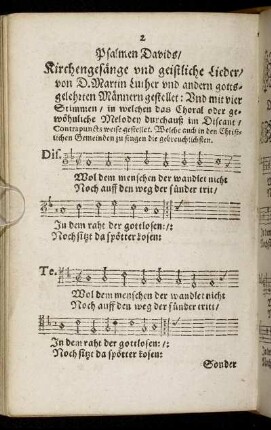 2
Psalmen Davids/
Kirchengesänge vnd geistliche Lieder/
von D. Martin Luther vnd andern gotts-
gelehrten Männern gestellet: Vnd mit vier
Stimmen / in welchen das Choral oder ge-
wöhnliche Melodey durchauß im Discant /
Contrapuncts weise gestellet. Welche auch in den Christ-
lichen Gemeinden zu singen die gebreuchlichsten.
Dis.
Wol dem menschen der wandlet nicht
Noch auff den weg der sünder tritt/
In dem raht der gottlosen:/:
Noch sitzt da spötter kosen:
Te.
Wol dem menschen der wandlet nicht
Noch auff den weg der sünder tritt/
In dem raht der gottlosen:/:
Noch sitzt da spötter kosen:
Sonder